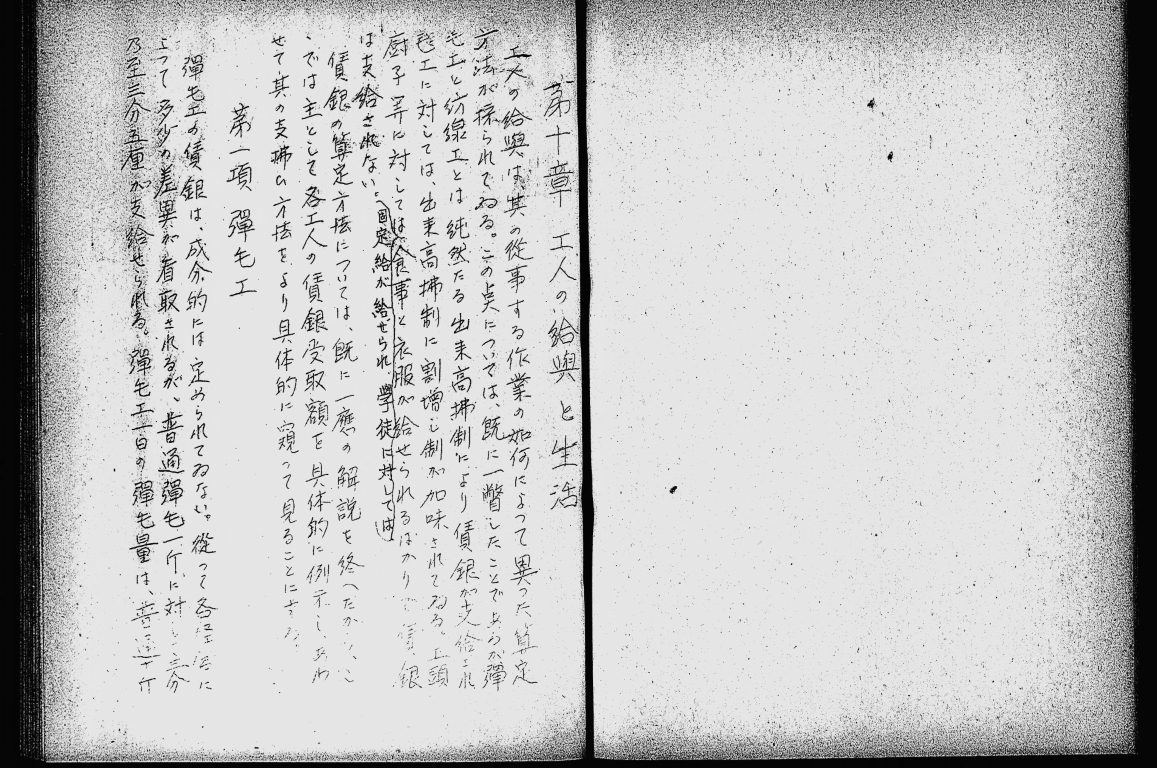 第十章 工人の給與と生活
工人の給與は、其の從事する作業の如何によつて異つた算定
方法が採られてゐる。この点については、既に一瞥したことであるが彈
毛工と紡線工とは純然たる出来高拂制により賃銀が支給され
毯工に対しては、出来高拂制に割増し制が加味されてゐる。工頭
厨子等に対しては(固定給が給せられ、學徒に対しては)食事と衣服が給せられるばかりで賃銀
は支給されない。
賃銀の算定方法については、既に一應の解説を終へたから、こ
ゝでは主として各工人の賃銀受取額を具体的に例示し、あわ
せて其の支拂ひ方法をより具体的に窺つて見ることにする。
第一項 彈毛工
彈毛工の賃銀は、成分的には定められてゐない。從つて各
よつて多少の差異が看取されるが、普通彈毛一斤に対し三分
乃至三分五厘が支給せられる。彈毛工一日の彈毛量は、普通十斤